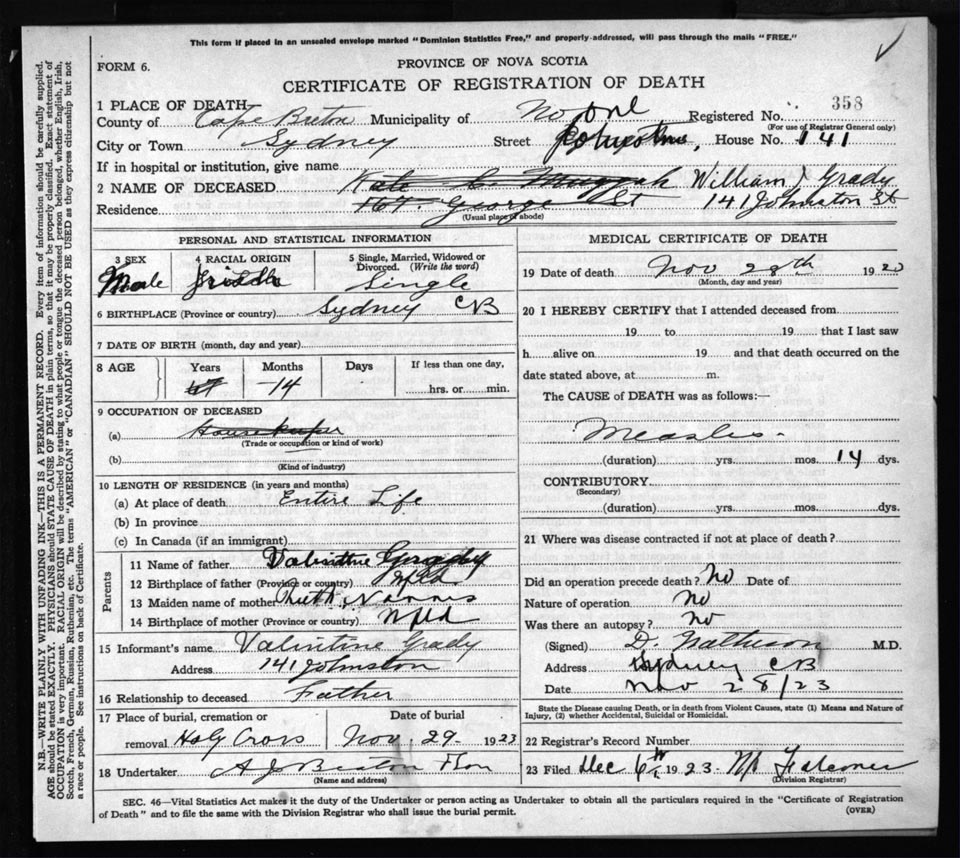 This form if placed in an unsealed envelope marked "Dominion Statistics Free," and properly-addressed, will pass through the mails "FREE."
FORM 6.
PROVINCE OF NOVA SCOTIA
CERTIFICATE OF REGISTRATION OF DEATH
358
1 PLACE OF DEATH—
County of Cape Breton Municipality of No one Registered No.
(For use of Registrar General only)
City or Town Sydney Street Johnstone, House No. 141
If in hospital or institution, give name
2 NAME OF DECEASED Kate C. Muggah William J Grady
Residence 107 George St 141 Johnston St
(Usual place of abode)
PERSONAL AND STATISTICAL INFORMATION
3 SEX 4 RACIAL ORIGIN 5 Single, Married, Widowed or Divorced. (Write the word)
Male Irish Single
6 BIRTHPLACE (Province or country) Sydney CB
7 DATE OF BIRTH (month, day and year)
8 AGE Years Months Days If less than one day,
14
hrs. or min.
9 OCCUPATION OF DECEASED
(a) Housekeeper
(Trade or occupation or kind of work)
(b)
(Kind of industry)
10 LENGTH OF RESIDENCE (in years and months)
(a) At place of death Entire Life
(b) In province
(c) In Canada (if an immigrant)
Parents
11 Name of father Valintine Grady
12 Birthplace of father (Province or country) Nfld
13 Maiden name of mother
14 Birthplace of mother (Province or country) Nfld
15 Informant's name Valintine Grady
Address 141 Johnston
16 Relationship to deceased Father
17 Place of burial, cremation or removal Holy Cross
Date of burial Nov. 29 - 1923
18 Undertaker A J Beaton & Son
(Name and address)
MEDICAL CERTIFICATE OF DEATH
19 Date of death Nov 28th 1923
(Month, day and year)
20 I HEREBY CERTIFY that I attended deceased from
19 to 19 that I last saw
h alive on 19 and that death occurred on the
date stated above, at m.
The CAUSE of DEATH was as follows:—
Measles -
(duration) yrs. mos. 14 dys.
CONTRIBUTORY
(Secondary)
(duration) yrs. mos. dys.
21 Where was disease contracted if not at place of death?
Did an operation precede death? No Date of
Nature of operation no
Was there an autopsy? no
(Signed) D. Mathieson M.D.
Address Sydney CB
Date Nov 28/23
State the Disease causing Death, or in death from Violent Causes, state (1) Means and Nature of
Injury, (2) whether Accidental, Suicidal or Homicidal.
22 Registrar's Record Number
23 Filed Dec 6th 1923 Falconer
(Division Registrar)
SEC. 46—Vital Statistics Act makes it the duty of the Undertaker or person acting as Undertaker to obtain all the particulars required in the "Certificate of Registration
of Death" and to file the same with the Division Registrar who shall issue the burial permit.
(OVER)
N.B.—WRITE PLAINLY WITH UNFADING INK—THIS IS A PERMANENT RECORD. Every item of information should be carefully supplied.
AGE should be stated EXACTLY. PHYSICIANS should STATE CAUSE OF DEATH in plain terms, so that it may be properly classified. Exact statement of
OCCUPATION is very important. RACIAL ORIGIN will be described by stating to what people or tongue the deceased person belonged, whether English, Irish,
Scotch, French, German, Russian, Ruthenian, etc. The terms "AMERICAN" or "CANADIAN" SHOULD NOT BE USED as they express citizenship but not
a race or people. See instructions on back of Certificate.